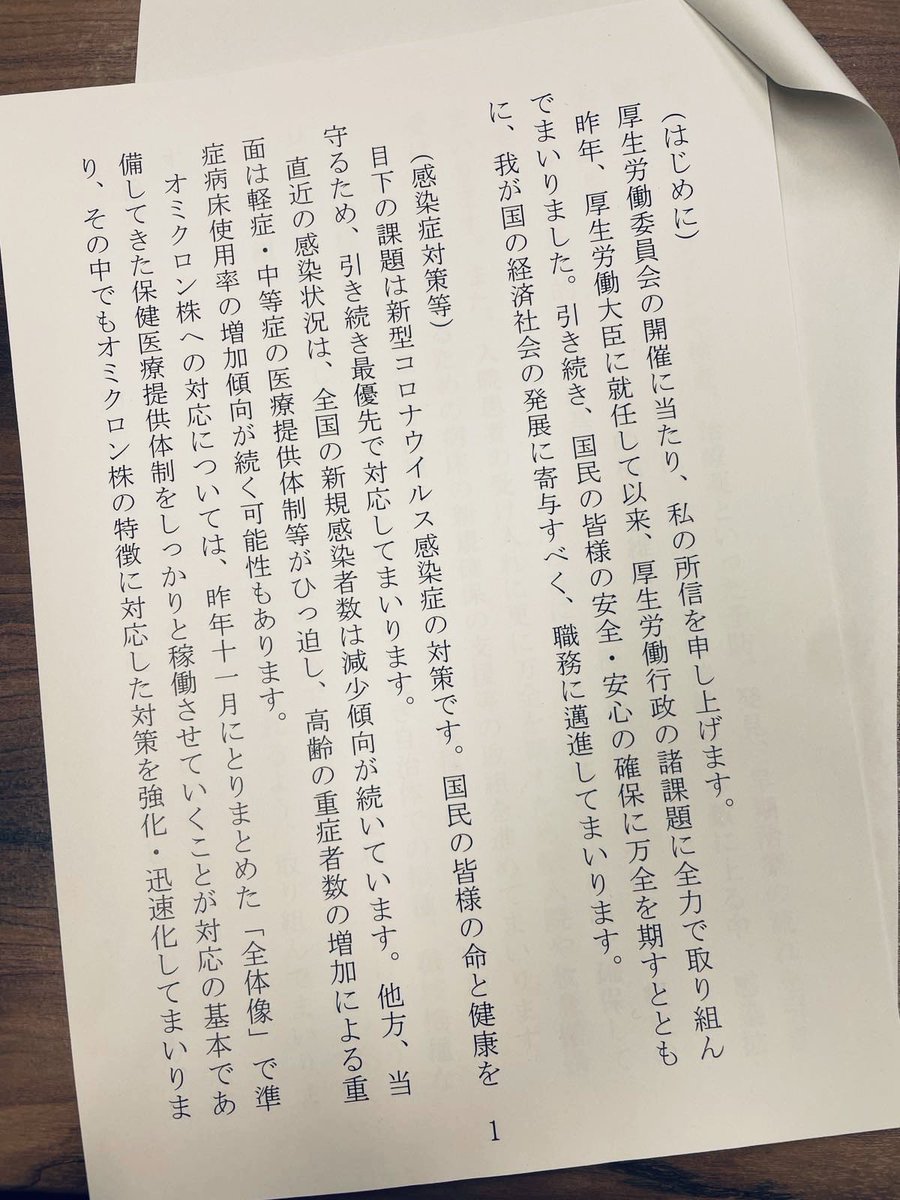 (はじめに)
厚生労働委員会の開催に当たり、私の所信を申し上げます。
昨年、厚生労働大臣に就任して以来、厚生労働行政の諸課題に全力で取り組ん
でまいりました。引き続き、国民の皆様の安全・安心の確保に万全を期すととも
に、我が国の経済社会の発展に寄与すべく、職務に邁進してまいります。
(感染症対策等)
目下の課題は新型コロナウイルス感染症の対策です。国民の皆様の命と健康を
守るため、引き続き最優先で対応してまいります。
直近の感染状況は、全国の新規感染者数は減少傾向が続いています。他方、当
面は軽症・中等症の医療提供体制等がひっ迫し、高齢の重症者数の増加による重
症病床使用率の増加傾向が続く可能性もあります。
オミクロン株への対応については、昨年十一月にとりまとめた「全体像」で準
備してきた保健医療提供体制をしっかりと稼働させていくことが対応の基本であ
り、その中でもオミクロン株の特徴に対応した対策を強化・迅速化してまいりま
1